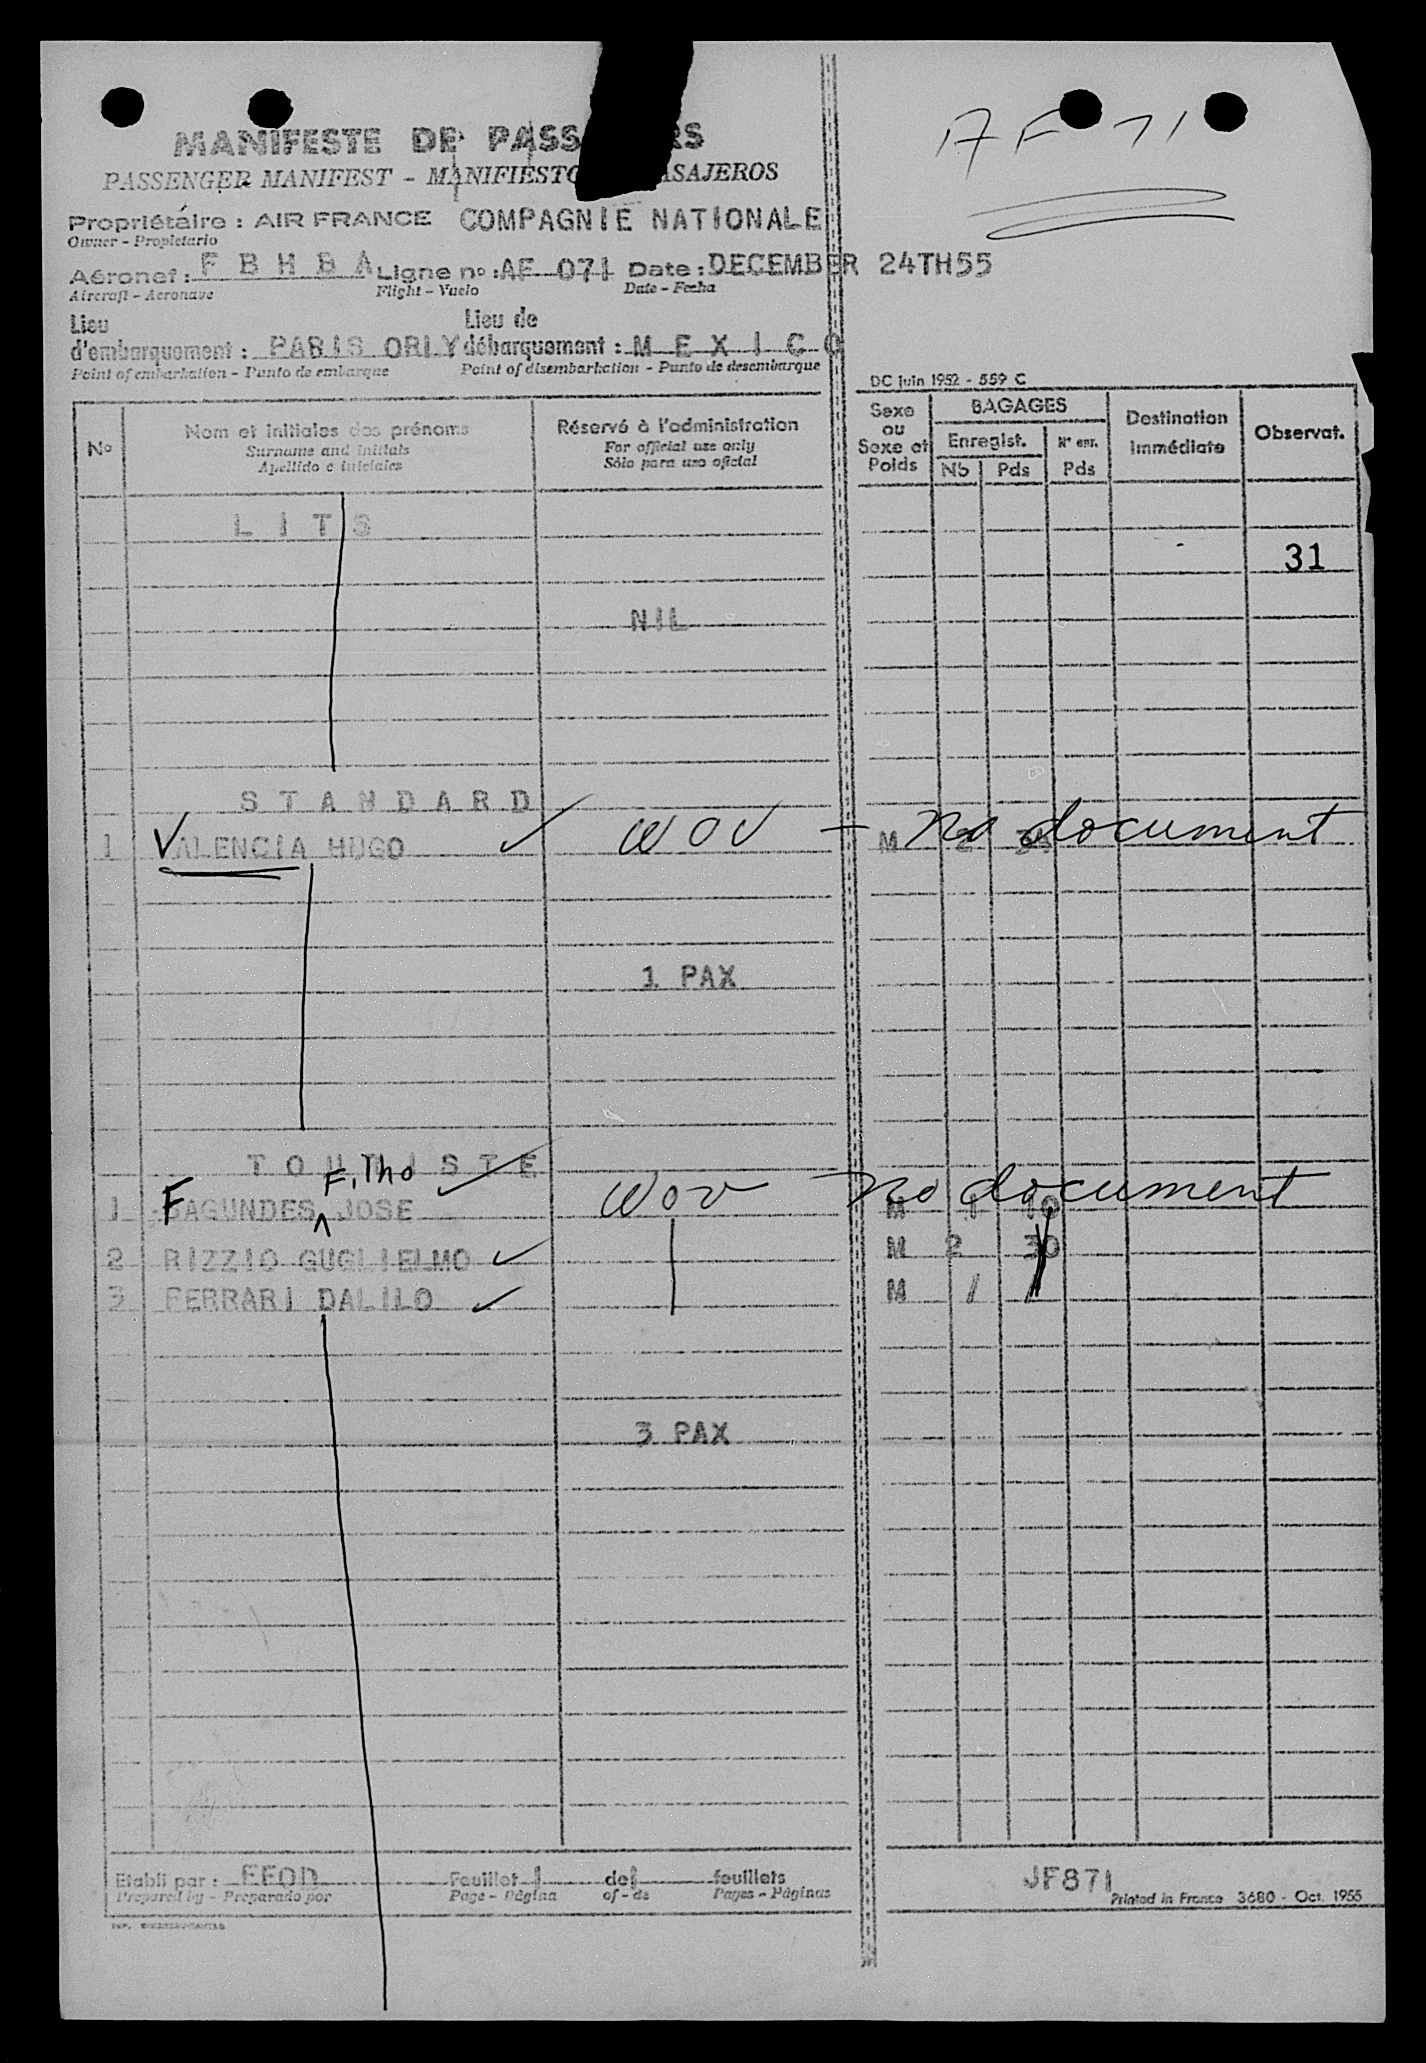 AF 71
MANIFESTE DE PASS RS
PASSENGER MANIFEST - MANIFIESTO ASAJEROS
Propriétaire : AIR FRANCE COMPAGNIE NATIONALE
Owner - Propietario
Aéronef : F B H B A Ligne no : AF 071 Date : DECEMBER 24TH55
Aircraft - Aeronave Flight - Vuelo Date - Fecha
Lieu d'embarquement : PARIS ORLY Lieu de débarquement : M E X I C O
Point of embarkation - Punto de embarque Point of disembarkation - Punto de desembarque
DC juin 1952 - 559 C
No Nom et initiales des prénoms Réservé à l'administration Sexe ou Sexe et Poids BAGAGES Destination immédiate Observat.
Surname and initials For official use only Enregist. N' enr.
Apellido e iniciales Sólo para uso oficial Nb Pds Pds
L I T S
31
NIL
S T A N D A R D
1 VALENCIA HUGO WOV - no document M 2
1 PAX
T O U R I S T E
F. Tho
1 FAGUNDES JOSE WOV no document M 1 10
2 RIZZIO GUGLIELMO M 2 30
3 FERRARI DALILO M 1
3 PAX
Etabli par : EFOD Feuillet 1 de 1 feuillets JF871
Prepared by - Preparado por Page - Página of - de Pages - Páginas Printed in France 3680 - Oct. 1955